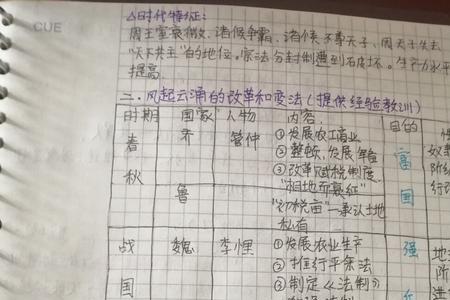 CUE
△时代特征:
周王室衰微、诸侯争霸、诸侯不尊天子、周天子失去
"天下共主"的地位。宗法分封制遭到破坏。生产力水平
提高
二、风起云涌的改革和变法(提供经验教训)
时期 国家 人物 内容 目的 性
春秋 齐 管仲 ①发展农工商业 富国
②整顿,发展军备 奴
③改革赋税制度 阶级
"相地而衰征" 行
鲁 "初税亩"—承认土地
私有
战国 魏 李悝 ①发展农业生产 强 地
②推行平籴法 阶
③制定《法制》 进